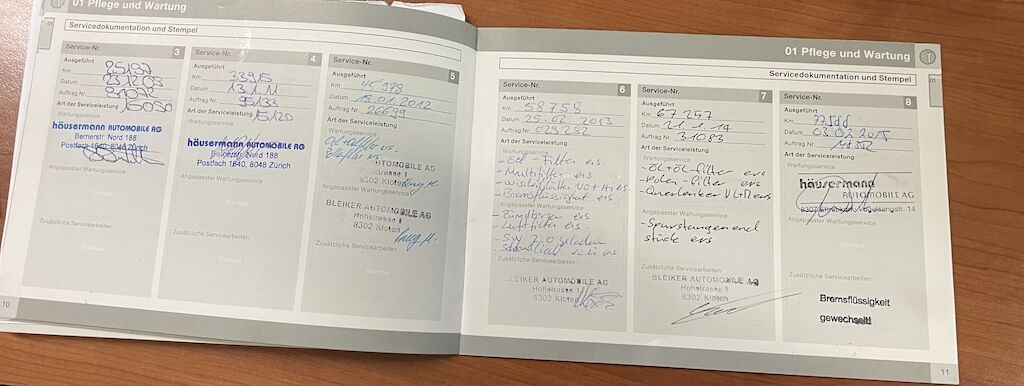 01 Pflege und Wartung
Servicedokumentation und Stempel
Service-Nr. 3
Ausgeführt
Km 25197
Datum 23.12.09
Auftrag Nr.
Art der Serviceleistung
Wartungsservice
häusermann AUTOMOBILE AG
Bernerstr. Nord 188
Postfach 1640, 8048 Zürich
Angepasster Wartungsservice
Zusätzliche Servicearbeiten
Service-Nr. 4
Ausgeführt
Km 33915
Datum 13.1.11
Auftrag Nr. 95133
Art der Serviceleistung
15/20
Wartungsservice
häusermann AUTOMOBILE AG
Bernerstr. Nord 188
Postfach 1640, 8048 Zürich
Angepasster Wartungsservice
Zusätzliche Servicearbeiten
Service-Nr. 5
Ausgeführt
Km 45978
Datum 18.01.2012
Auftrag Nr. 26699
Art der Serviceleistung
Wartungsservice
AUTOMOBILE AG
8302 Kloten
Angepasster Wartungsservice
BLEIKER AUTOMOBILE AG
Hohstrasse 1
8302 Kloten
Zusätzliche Servicearbeiten
10
01 Pflege und Wartung
Servicedokumentation und Stempel
01
Service-Nr. 6
Ausgeführt
Km 58758
Datum 25.02.2013
Auftrag Nr. 029282
Art der Serviceleistung
Wartungsservice
- Oel - Filter ers.
- Multifilter ers.
- Wischblätter Vo + Hi ers.
- Bremsflüssigkeit ers
Angepasster Wartungsservice
- Zündkerzen ers
- Luftfilter ers
Zusätzliche Servicearbeiten
BLEIKER AUTOMOBILE AG
Hohstrasse 1
8302 Kloten
Service-Nr. 7
Ausgeführt
Km 67257
Datum 21.1.14
Auftrag Nr. 31083
Art der Serviceleistung
Wartungsservice
- Öl + Öl-filter ers
- Polen-filter ers
- Querlenker V L+R ers
Angepasster Wartungsservice
- Spurstangenend
stück ers
Zusätzliche Servicearbeiten
BLEIKER AUTOMOBILE AG
Hohstrasse 1
8302 Kloten
Service-Nr. 8
Ausgeführt
Km
Datum 03.02.2015
Auftrag Nr.
Art der Serviceleistung
Wartungsservice
häusermann
AUTOMOBILE AG
Angepasster Wartungsservice
Zusätzliche Servicearbeiten
Bremsflüssigkeit
gewechselt!
11